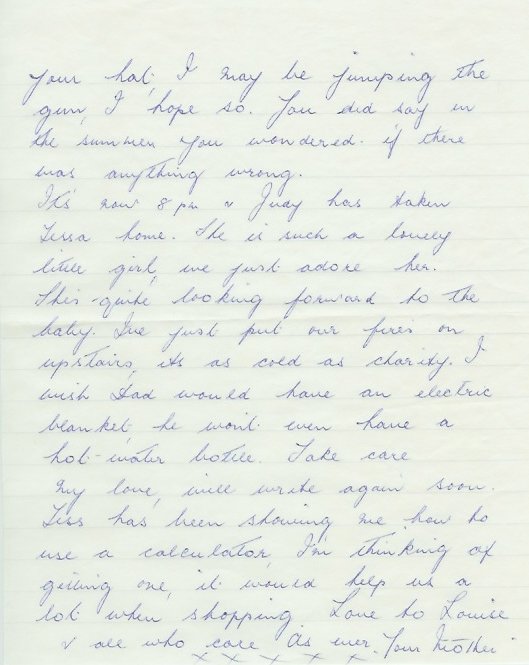 your hat, I may be jumping the
gun, I hope so. You did say in
the summer you wondered if there
was anything wrong.
It's now 8 pm & Judy has taken
Lissa home. She is such a lovely
little girl, we just adore her.
She's quite looking forward to the
baby. I've just put our fires on
upstairs, its as cold as charity. I
wish Dad would have an electric
blanket, he won't even have a
hot-water bottle. Take care
my love, will write again soon.
Liss has been showing me how to
use a calculator, I'm thinking of
getting one, it would help us a
lot when shopping. Love to Louise
& all who care. As ever. Your Mother
x x x x x